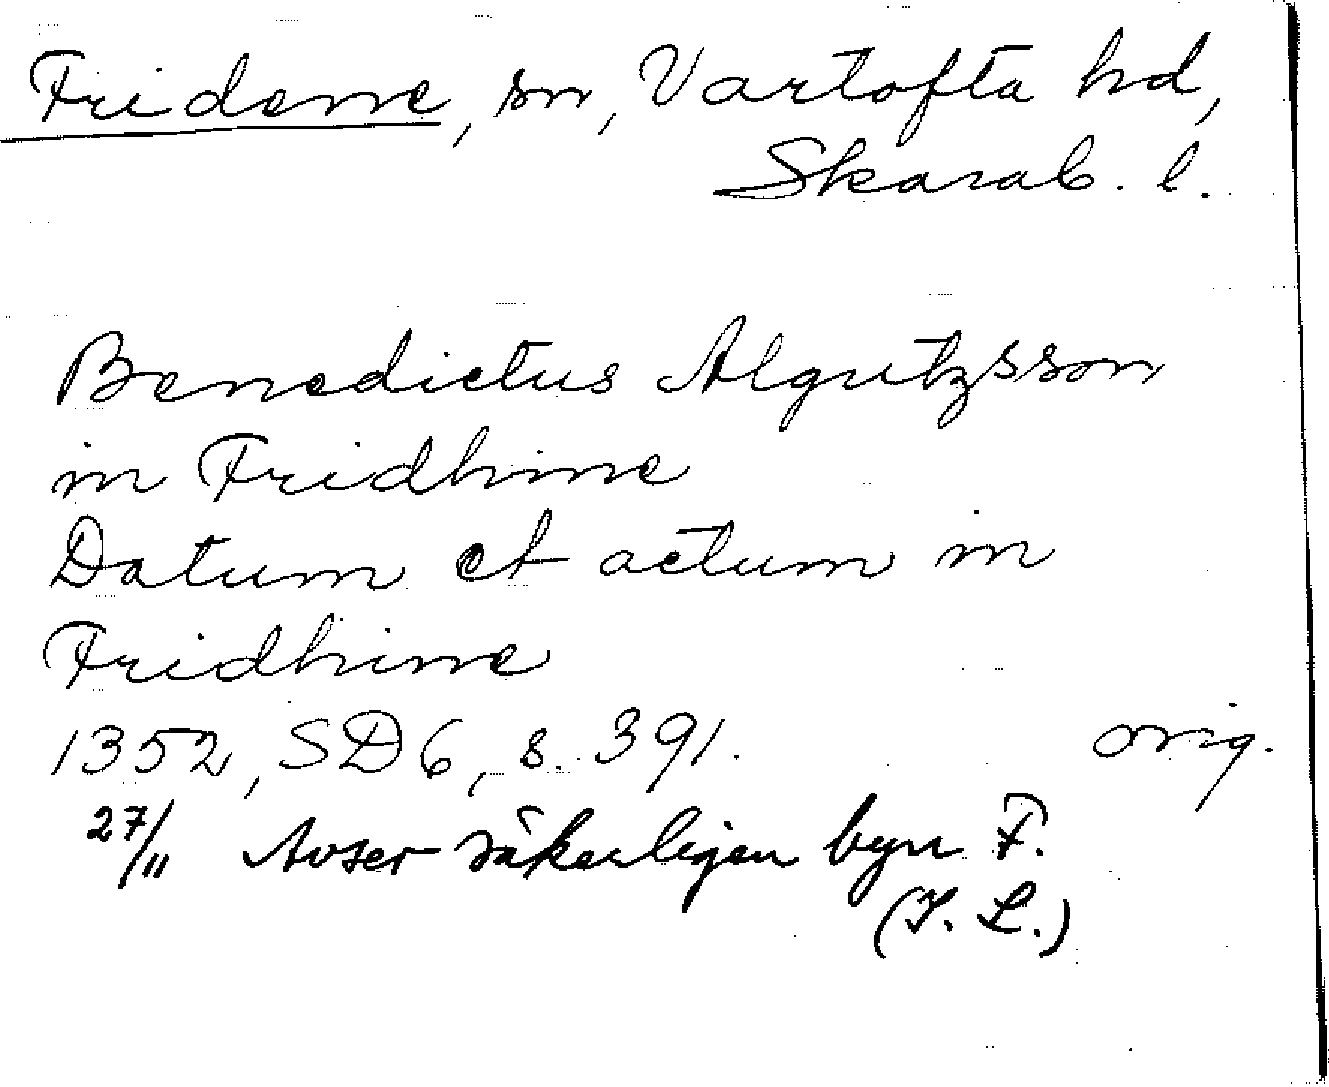 Fridene, sn, Vartofta hd,
Skarab. l.
Benedictus Algutzsson
in Fridhine
Datum et actum in
Fridhine
1352, SD 6, s. 391. orig.
27/11 Avser säkerligen byn F.
(I. L.)